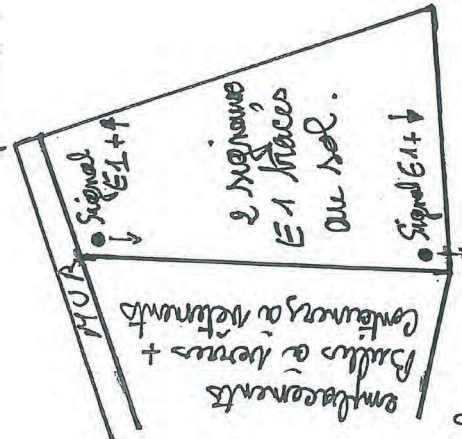 MUR
Signal
E1 + ↑
2 signaux
E1 tracés
au sol.
Signal E1 + ↓
emplacements
Bulles à verres +
Containers à vêtements